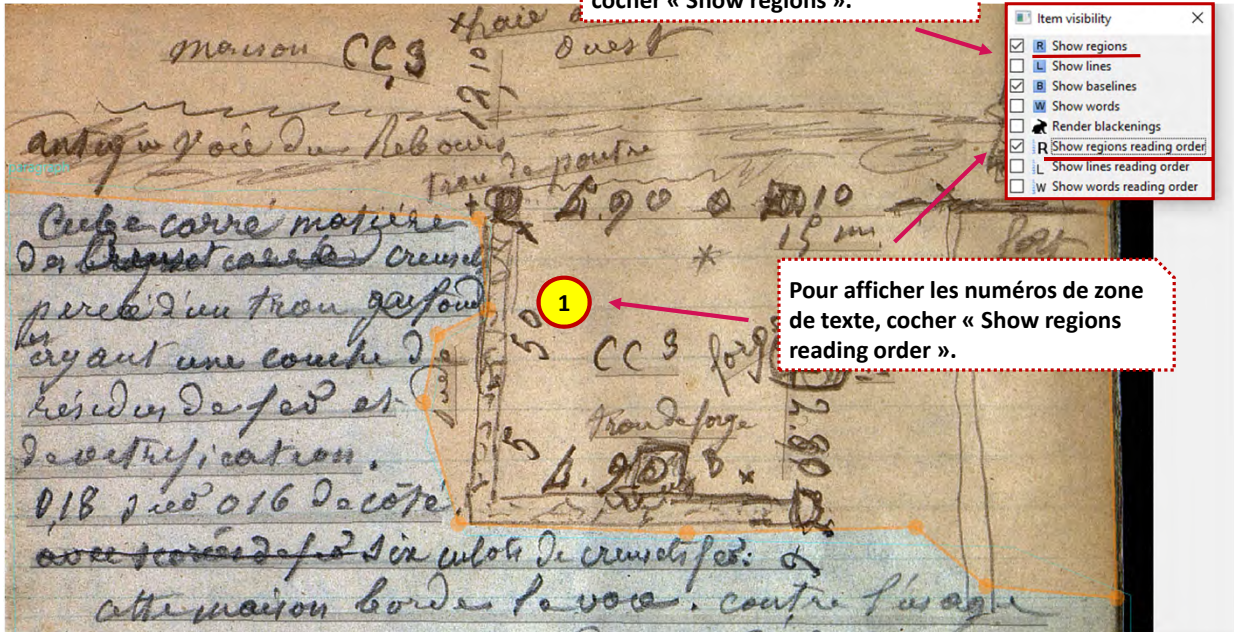 cocher « Show regions ».
Item visibility
Show regions
Show lines
Show baselines
Show words
Render blackenings
Show regions reading order
Show lines reading order
Show words reading order
maison CC,3
haie
Ouest
antique voie du Rebours
trou de poutre
paragraph
4.90
10
15 m.
Cube carré matière
des creuset
percé d'un trou
ayant une couche de
résidus de fer et
de vitrification.
0,18 016 de côté.
six culots de creusets
cette maison borde la voie. contre l'usage
1
50
5
CC 3 forge
trou de forge
2.80
Pour afficher les numéros de zone
de texte, cocher « Show regions
reading order ».